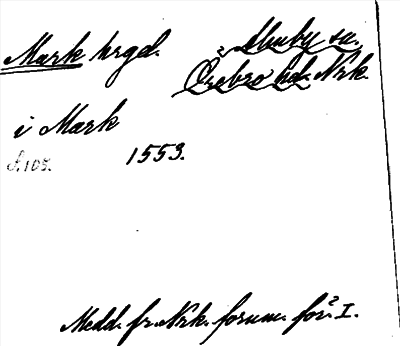 Mark hrgd. Almby sn.
Örebro hd. Nrk.
i Mark
S. 105. 1553.
Medd. fr. Nrk. fornm. för. I.